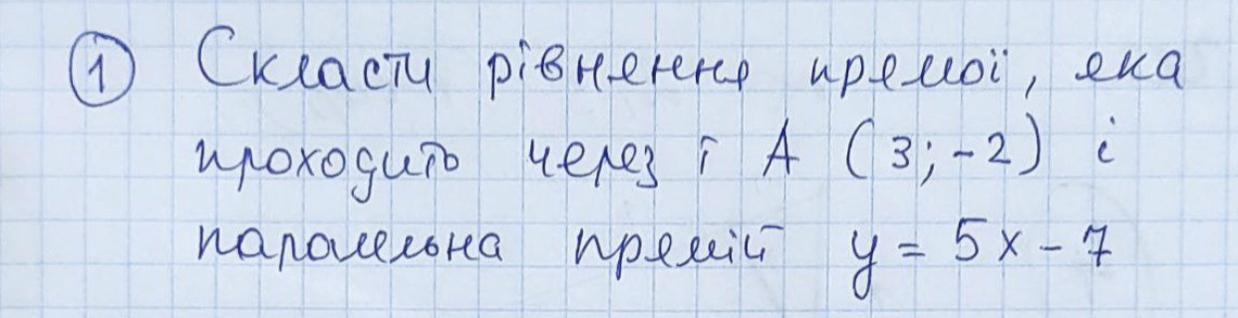 ① Скласти рівняння прямої, яка
проходить через т А (3; -2) і
паралельна прямій y = 5x - 7